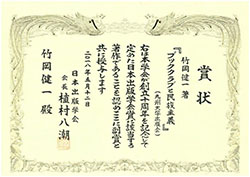 賞状
竹岡健一著
『ブッククラブと民族主義』
（九州大学出版会）
右は本学会が創立十周年を記念して
定めた日本出版学会賞に該当する
著作であることを認めここに副賞と
共に授与します
二〇一八年五月十二日
日本出版学会
会長 植村八潮
竹岡健一殿